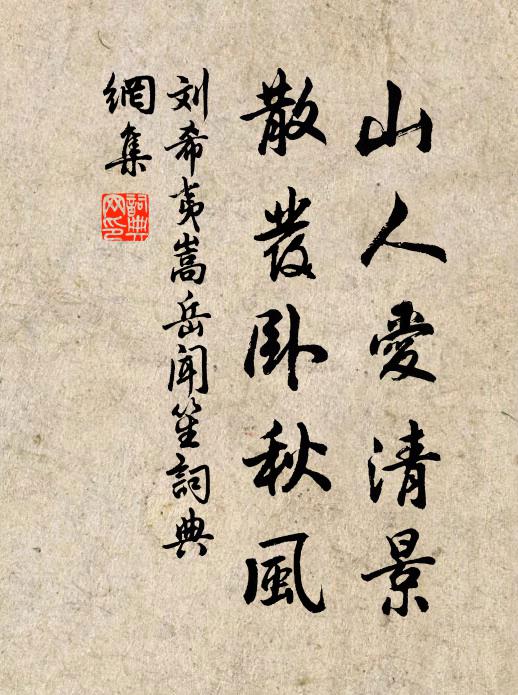 山人愛清景
散發卧秋風
刘希夷嵩岳聞笙詞典
網集
詞典網印